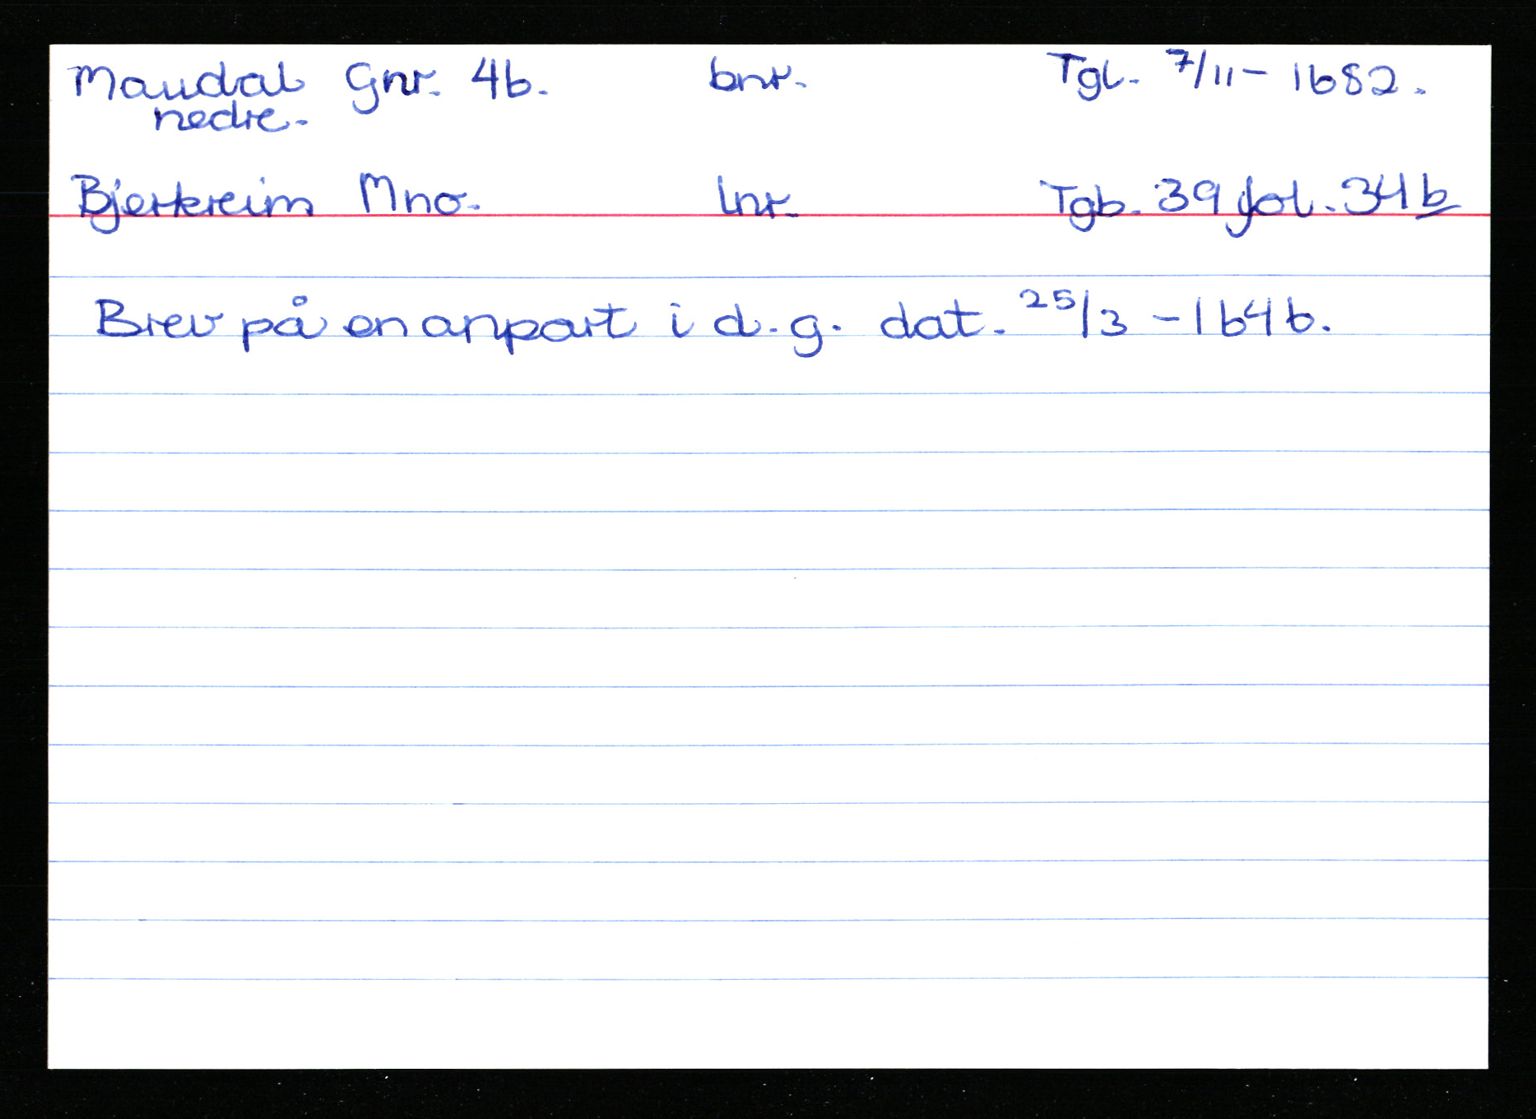 Maudal Gnr. 46. bnr. Tgl. 7/11 - 1682.
nedre.
Bjerkreim Mno. lnr. Tgb. 39 fol. 34b
Brev på en anpart i d.g. dat. 25/3 - 1646.